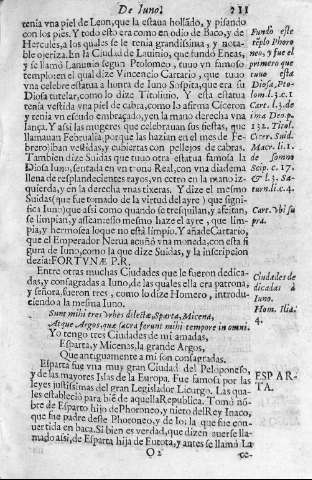 De Iuno.
211
tenia vna piel de Leon, que la estaua hollãdo, y pisando
con los pies. Y todo esto era como en odio de Baco, y de
Hercules, a los quales se le tenia grandissima, y nota-
ble ojeriza. En la Ciudad de Lauinio, que fundo Eneas,
y se llamò Lanunio segun Ptolomeo, tuuo vn famoso
templo en el qual dize Vincencio Cartario, que tuuo
vna celebre estatua a hunca de Iuno Sospita, que era su
Diosa tutelar, como lo dize Titoliuio. Y esta estatua
tenia vestida vna piel de cabra, como lo afirma Ciceron
y tenia vn escudo embraçado, y en la mano derecha vna
lança. Y assi las mugeres que celebrauan sus fiestas, que
llamauan Februalia, porque las hazian en el mes de Fe-
brero) iban vestidas, y cubiertas con pellejos de cabras.
Tambien dize Suidas que tuuo otra estatua famosa la
Diosa Iuno, sentada en vn trono Real, con vna diadema
llena de resplandecientes rayos, vn cetro en la mano iz-
quierda, y en la derecha vnas tixeras. Y dize el mesmo
Suidas (que fue tomado de la virtud del ayre) que signi-
fica Iuno) que assi como quando se trasquilan, y afeitan,
se limpian, y assean: esso mesmo haze el ayre, que lim-
pia, y hermosea loque no està limpio. Y añade Cartario,
que el Emperador Nerua acuñò vna moneda, con esta si
gura de Iuno, como la que dize Suidas, y la inscripcion
dezia: FORTVNÆ P.R.
Entre otras muchas Ciudades que le fueron dedica-
das, y consagradas a Iuno, de las quales ella era patrona,
y señora, fueron tres, como lo dize Homero, introdu-
ciendo a la mesma Iuno.
Sunt mihi tres Vrbes dilectæ, Sparta, Micena,
Atque Argos, quæ sacra ferunt mihi tempore in omni.
Yo tengo tres Ciudades de mi amadas,
Esparta, y Micenas, la grande Argos,
Que antiguamente a mi son consagradas.
Esparta fue vna muy gran Ciudad del Peloponeso,
y de las mayores Islas de la Europa. Fue famosa por las
leyes justissimas del gran Legislador Licurgo. Las qua-
les estableciò para biẽ de aquella Republica. Tomò nõ-
bre de Esparto hijo de Phoroneo, y nieto del Rey Inaco,
que fue padre deste Phoroneo, y de Io; la que fue con-
uertida en baca. Si bien es verdad, que dizen auerse lla-
mado assi, de Esparta hija de Eutota, y antes se llamò La
O 2
ce-
Fundò este
tẽplo Phoro
neo, y fue el
primero que
tuuo esta
Diosa, Pto-
lom. l. 3. c. 1
Cart. l. 3. de
ima Deo. p.
132. Titol.
Cicer. Suid.
Macr. li. 1.
de somno
Scip. c. 17.
& l. 3. Sa-
turn. li. c. 4.
Cart. Vbi su
pra.
Ciudades de
dicadas à
Iuno.
Hom. Ilia.
4.
ESPAR-
TA.